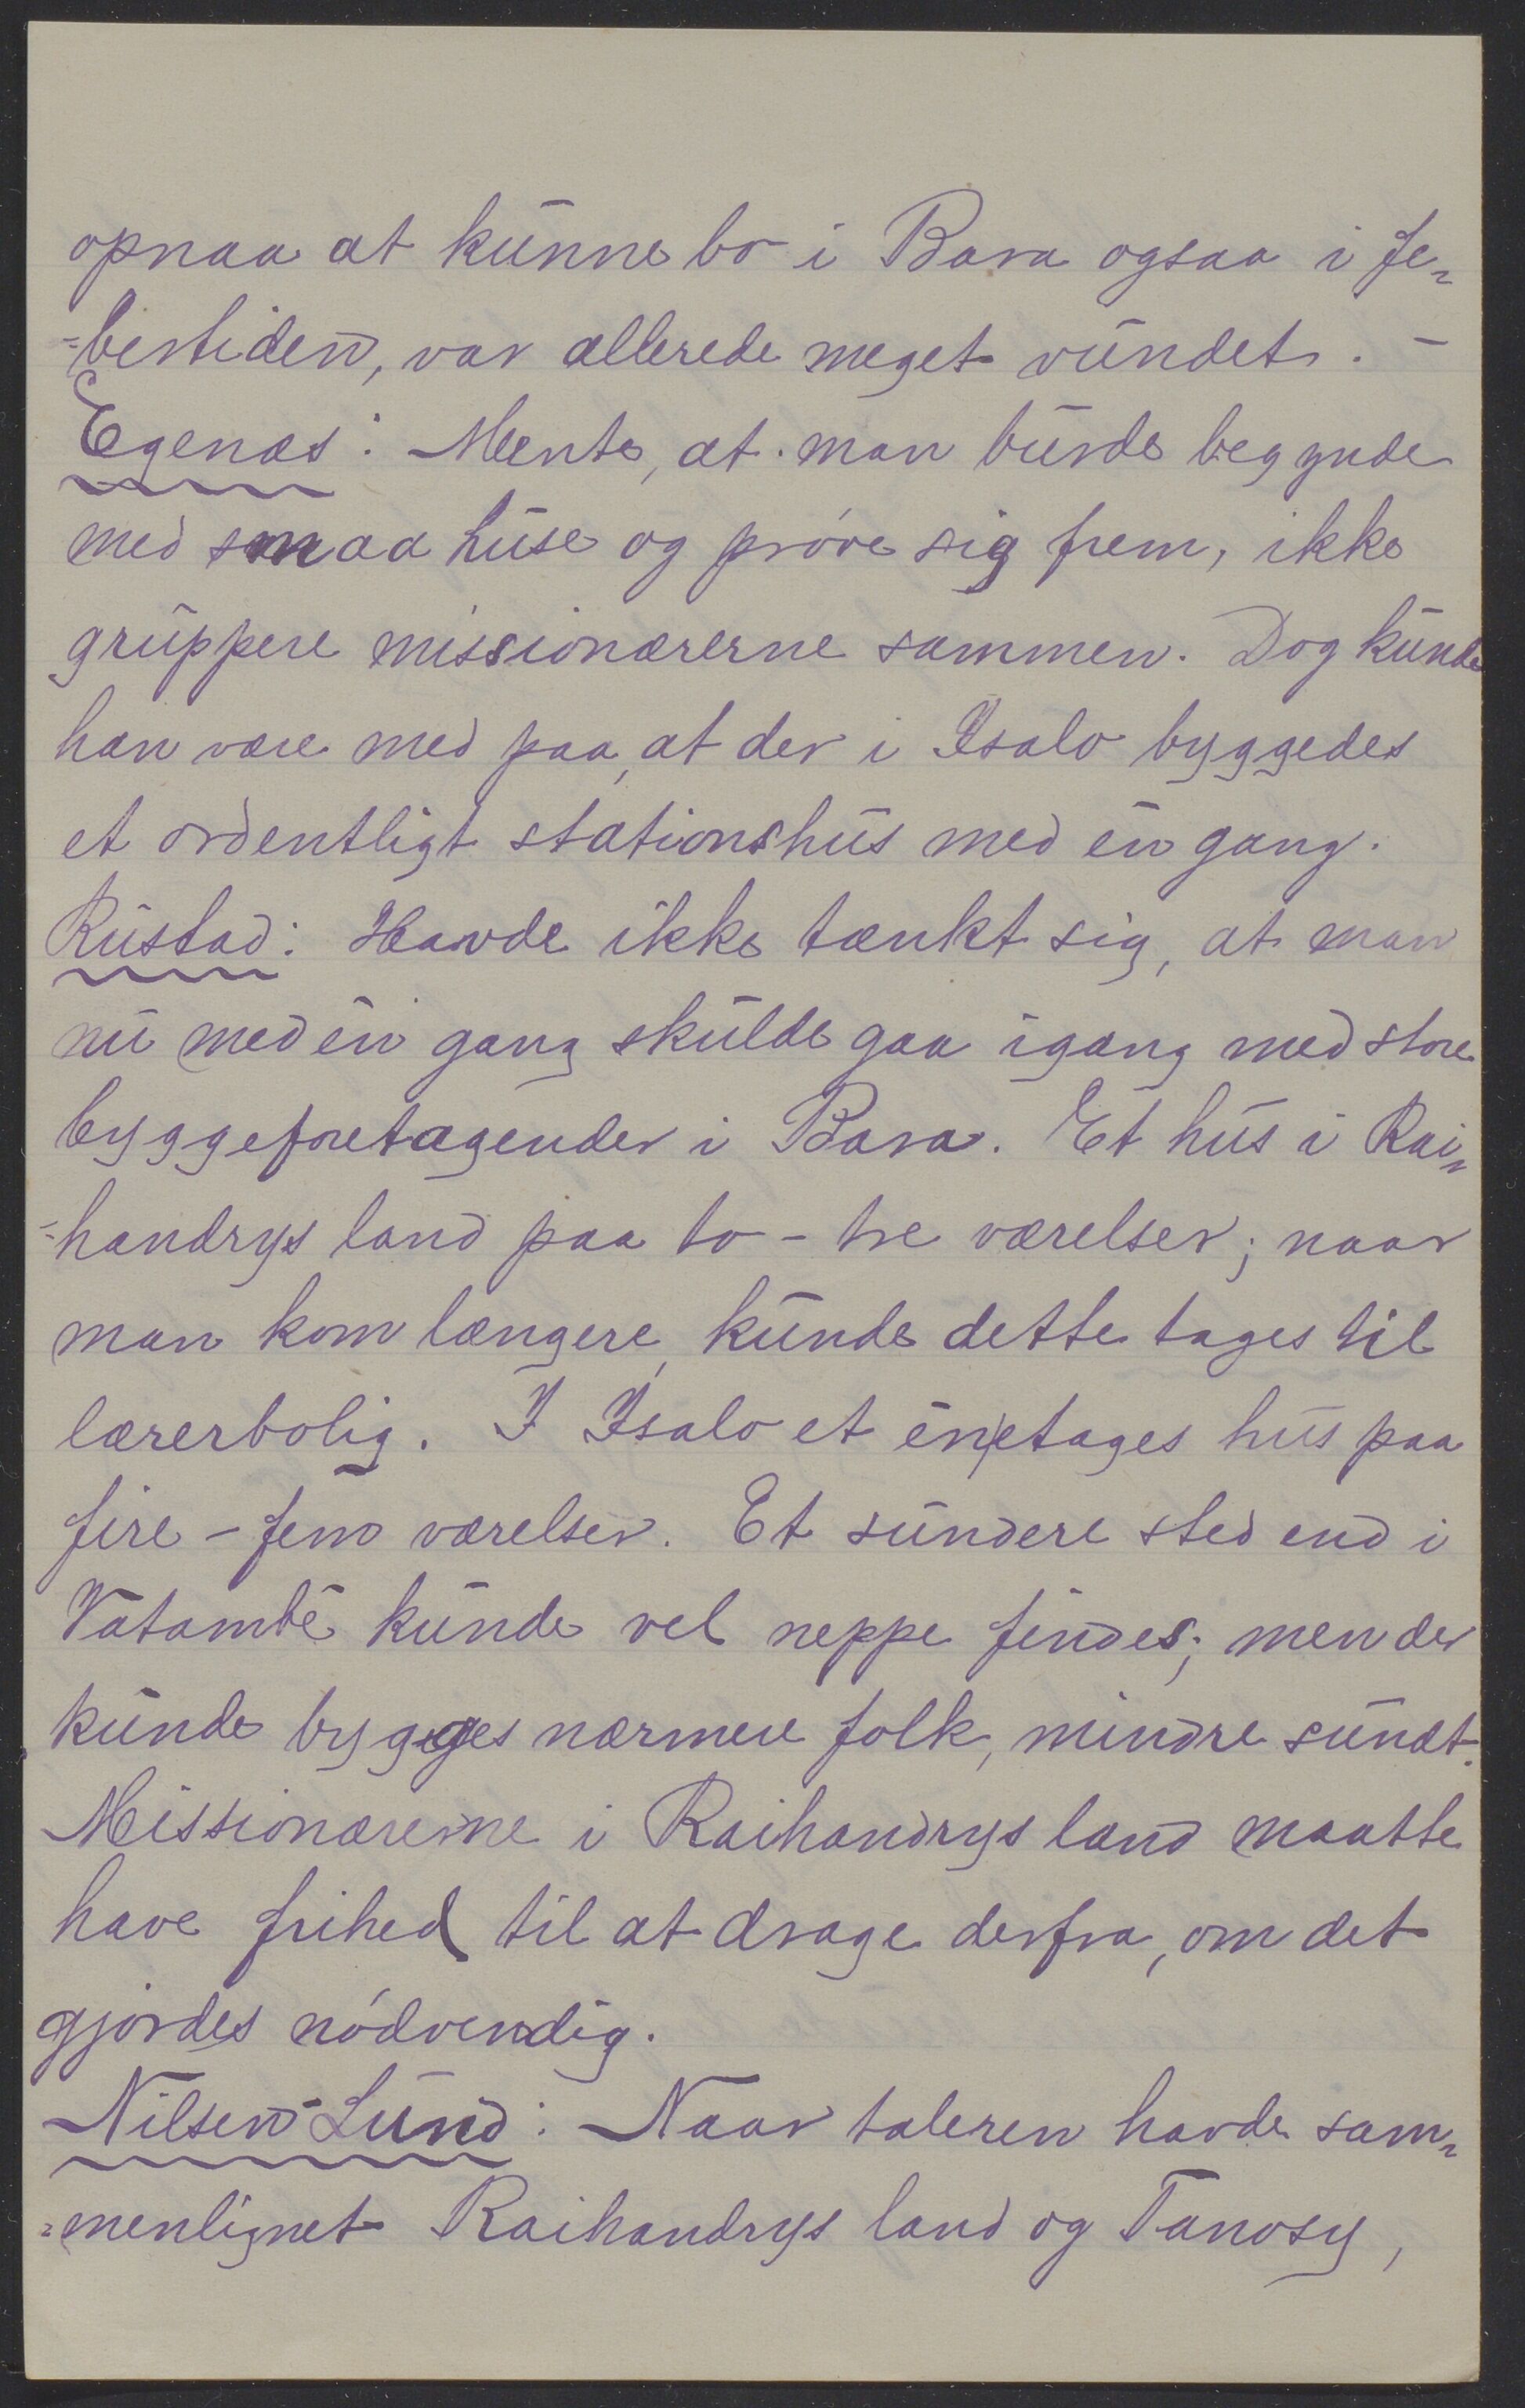 opnaa at kunne bo i Bara ogsaa i fe-
-bertiden, var allerede meget vundet. -
Egenæs: Mente, at man burde begynde
med smaa huse og prøve sig frem, ikke
gruppere missionærerne sammen. Dog kunde
han være med paa, at der i Isalo byggedes
et ordentligt stationshus med én gang.
Rustad: Havde ikke tænkt sig, at man
nu med én gang skulde gaa igang med store
byggeforetagender i Bara. Et hus i Rai-
-handrys land paa to - tre værelser; naar
man kom længere, kunde dette tages til
lærerbolig. I Isalo et énetages hus paa
fire - fem værelser. Et sundere sted end i
Vatambé kunde vel neppe findes; men der
kunde bygges nærmere folk, mindre sundt.
Missionærerne i Raihandrys land maatte
have frihed til at drage derfra, om det
gjordes nødvendig.
Nilsen-Lund: Naar taleren havde sam-
-menlignet Raihandrys land og Tanosy,